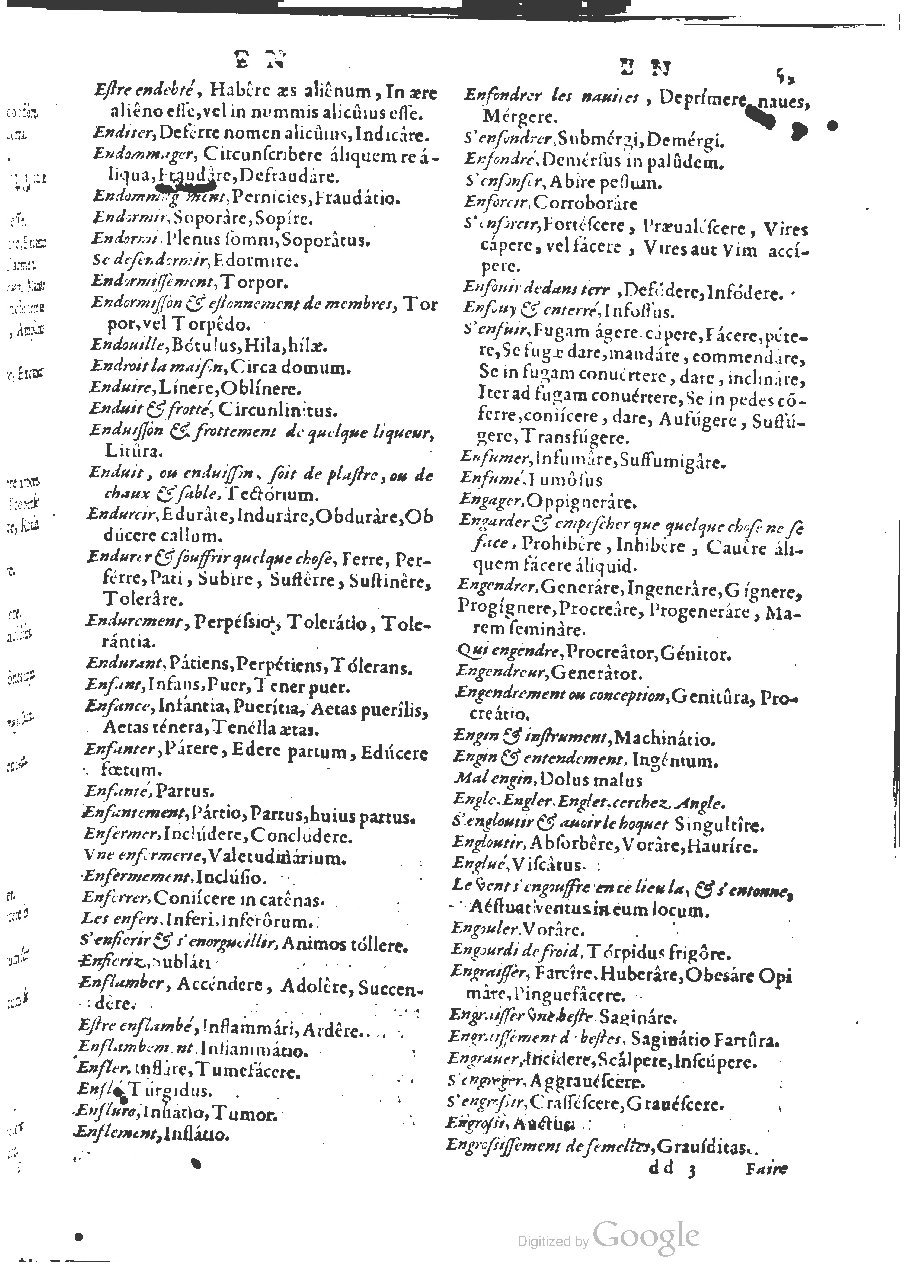 E N
Eſtre endebté, Habêre æs aliênum, In ære
aliêno eſſe, vel in nummis alicûius eſſe.
Enditer, Deférre nomen alicûius, Indicâre.
Endommager, Circunſcribere áliquem re á-
liqua, Fraudâre, Defraudâre.
Pernicies, Fraudátio.
Endormir, Soporâre, Sopíre.
Endormi, Plenus ſomni, Soporâtus.
Se deſendormir, Edormire.
Endormiſſement, Torpor.
Endormiſſon & eſtonnement de membres, Tor
por, vel Torpédo.
Endouille, Bótulus, Hila, hilæ.
Endroit la maiſon, Circa domum.
Enduire, Línere, Oblínere.
Enduit & frotté, Circunlinitus.
Enduiſſon & frottement de quelque liqueur,
Litûra.
Enduit, ou enduiſſon, ſoit de plaſtre, ou de
chaux & ſable, Tectórium.
Endurcir, Edurâte, Indurâre, Obdurâre, Ob
dúcere callum.
Endurer & ſouffrir quelque choſe, Ferre, Per-
férre, Pati, Subire, Sufférre, Suſtinêre,
Tolerâre.
Endurement, Perpéſsio, Tolerátio, Tole-
rántia.
Endurant, Pátiens, Perpétiens, Tólerans.
Enfant, Infans, Puer, Tener puer.
Enfance, Infántia, Puerítia, Aetas puerîlis,
Aetas ténera, Tenélla ætas.
Enfanter, Párere, Edere partum, Edúcere
fœtum.
Enfanté, Partus.
Enfantement, Pártio, Partus, huius partus.
Enfermer, Inclúdere, Conclúdere.
Vne enfermerie, Valetudinárium.
Enfermement, Incluſio.
Enferrer, Coniícere in catênas.
Les enfers, Inferi, Inferôrum.
S'enfierir & s'enorgueillir, Animos tóllere.
Sublâti
Enflamber, Accéndere, Adolêre, Succen-
dere.
Eſtre enflambé, Inflammári, Ardêre.
Inflammátio.
Enfler, Inflâre, Tumefácere.
Enflé Túrgidus.
Enflure, Inflatio, Tumor.
Enflement, Inflátio.
E N
Enfondrer les nauires, Deprímere naues,
Mérgere.
S'enfondrer, Submérgi, Demérgi.
Enfondré, Demérſus in palûdem.
Abire peſſum.
Enforcir, Corroborâre
S'enforcir, Fortéſcere, Præualéſcere, Vires
cápere, vel fácere, Vires aut Vim accí-
pere.
Enfouir dedans terr, Defódere, Infódere.
Enfouy & enterré, Infoſſus.
S'enfuir, Fugam ágere, cápere, Fácere, péte-
re, Se fugæ dare, mandáre, commendáre,
Se in fugam conuértere, dare, inclináre,
Iter ad fugam conuértere, Se in pedes cō-
ferre, coniícere, dare, Aufúgere, Suffú-
gere, Transfúgere.
Enfumer, Infumâre, Suffumigâre.
Enfumé, Fumôſus
Engager, Oppignerâre.
Engarder & empeſcher que quelque choſe ne ſe
face, Prohibêre, Inhibêre, Cauêre áli-
quem fácere áliquid.
Engendrer, Generâre, Ingenerâre, Gígnere,
Progígnere, Procreâre, Progenerâre, Ma-
rem ſeminâre.
Qui engendre, Procreâtor, Génitor.
Engendreur, Generâtor.
Engendrement ou conception, Genitûra, Pro-
creátio.
Engin & inſtrument, Machinátio.
Engin & entendement, Ingénium.
Mal engin, Dolus malus
Engle, Engler, Englet, cerchez, Angle.
S'engloutir & auoir le hoquet Singultîre.
Engloutir, Abſorbêre, Vorâre, Haurîre.
Englué, Viſcâtus.
Le vent s'engouffre en ce lieu la, & s'entonne,
Aéſtuat ventus in eum locum.
Engouler, Vorâre.
Engourdi de froid, Tórpidus frigôre.
Engraiſſer, Farcîre, Huberâre, Obesáre Opi
mâre, Pinguefâcere.
Engraiſſer vne beſte, Saginâre.
Engraiſſement de beſtes, Saginátio Fartûra.
Engrauer, Incídere, Scálpere, Inſcúpere.
S'engreger, Aggrauéſcere.
S'engroſsir, Craſſéſcere, Grauéſcere.
Engroſsi, Auctus
Engroſsiſſement de femelles, Grauíditas.
dd 3 Faire
Digitized by Google